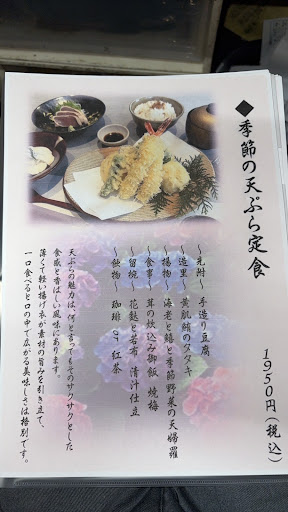 ◆季節の天ぷら定食
1950円(税込)
〜先附〜 手造り豆腐
〜造里〜 黄肌鮪のタタキ
〜揚物〜 海老と鱚と季節野菜の天婦羅
〜食事〜 茸の炊込み御飯 焼梅
〜留椀〜 花麩と若布 清汁仕立
〜飲物〜 珈琲 or 紅茶
天ぷらの魅力は、何と言ってもそのサクサクとした
食感と香ばしい風味にあります。
薄くて軽い揚げ衣が素材の旨みを引き立て、
一口食べると口の中で広がる美味しさは格別です。